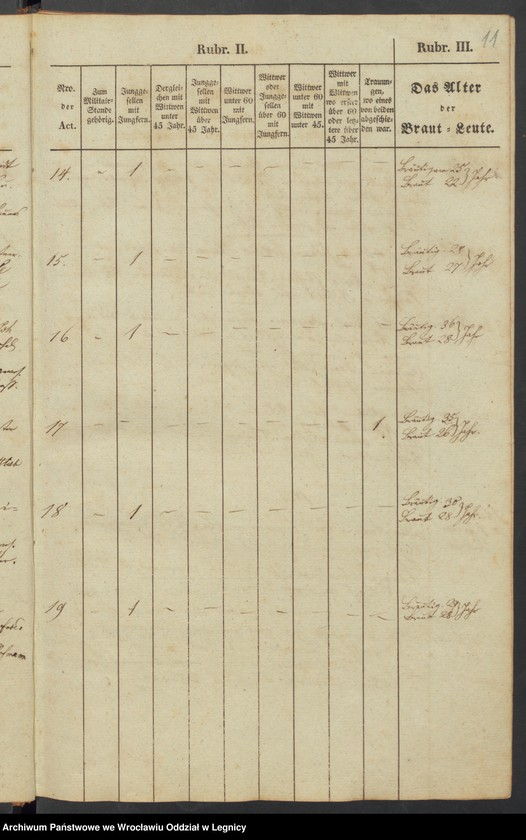 11
Rubr. II.
Rubr. III.
Nro.
der
Act.
Zum
Militair-
Stande
gehörig.
Jungge-
sellen
mit
Jungfern.
Dergleichen
mit
Wittwen
unter
45 Jahr.
Jungge-
sellen
mit
Wittwen
über
45 Jahr.
Wittwer
unter 60
mit
Jungfern.
Wittwer
oder
Jungge-
sellen
über 60
mit
Jungfern.
Wittwer
unter 60
mit
Wittwen
unter 45.
Wittwer
mit
Wittwen
wo erster
über 60
oder letz-
tere über
45 Jahr.
Trauun-
gen,
wo eines
von beiden
abgeschie-
den war.
Das Alter
der
Braut-Leute.
14. - 1 - - - - - - - Bräutigam 25
Braut 22 } Jahr
15. - 1 - - - - - - - Bräutig. 28
Braut 27 } Jahr
16 - 1 - - - - - - - Bräutig. 36
Braut 28 } Jahr
17 - - - - - - - - 1. Bräutig. 35
Braut 26 } Jahr.
18 - 1 - - - - - - - Bräutig. 30
Braut 28 } Jahr.
19 - 1 - - - - - - - Bräutig.
Braut } Jahr
Archiwum Państwowe we Wrocławiu Oddział w Legnicy